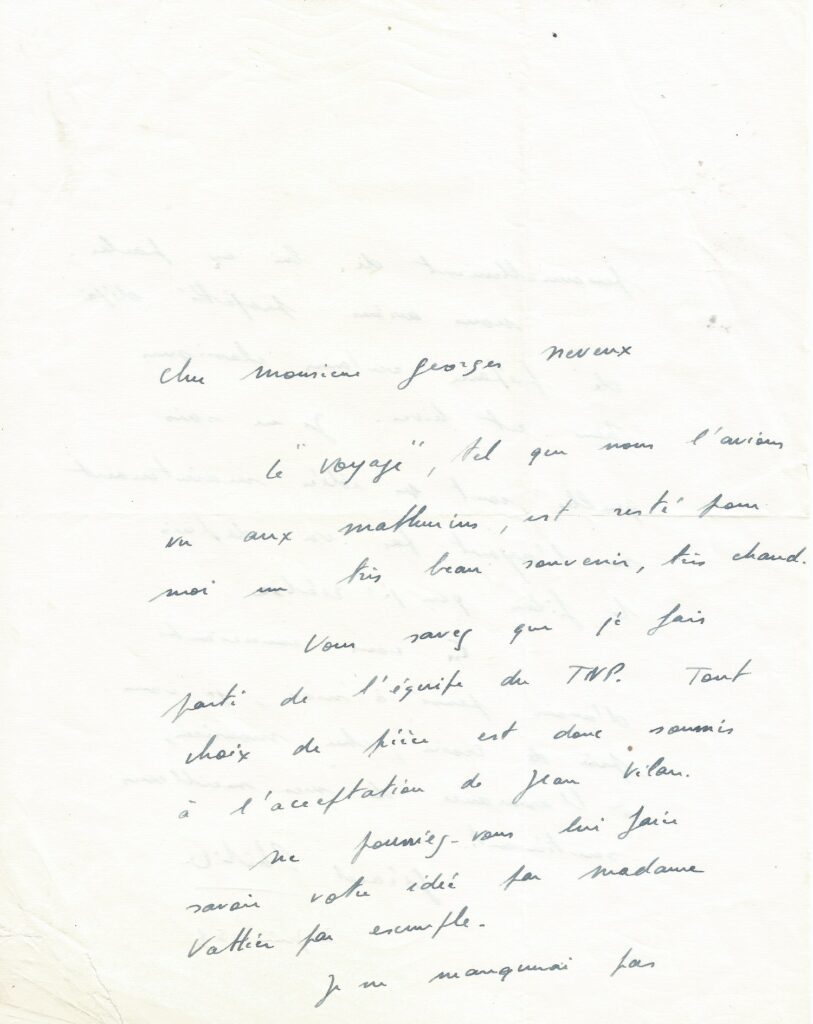 Cher Monsieur Georges Neveux
Le "Voyage", tel que nous l'avions
vu aux Mathurins, est resté pour
moi un très beau souvenir, très chaud.
Vous savez que je fais
parti de l'équipe du TNP. Tout
choix de pièce est donc soumis
à l'acceptation de Jean Vilar.
Ne pourriez-vous lui faire
savoir votre idée par Madame
Vattier par exemple.
Je ne manquerai pas